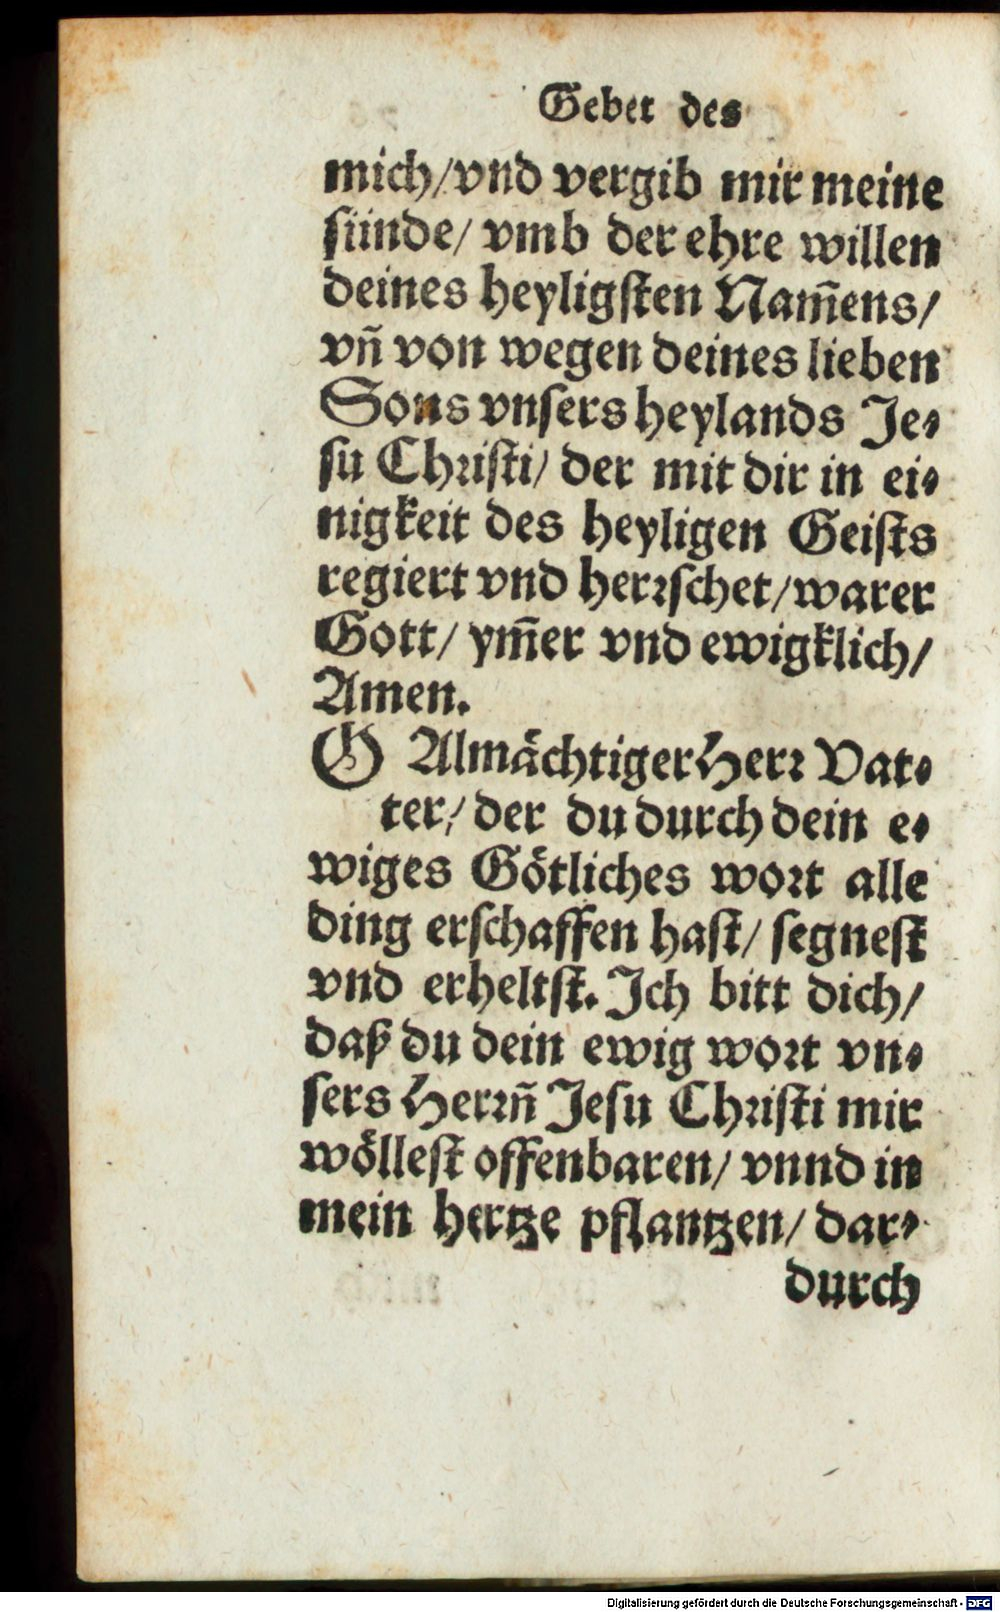 Gebet des
mich/vnd vergib mir meine
sünde/ vmb der ehre willen
deines heyligsten Nam̄ens/
vn̄ von wegen deines lieben
Sons vnsers heylands Je-
su Christi/ der mit dir in ei-
nigkeit des heyligen Geists
regiert vnd herrschet/warer
Gott/ ym̄er vnd ewigklich/
Amen.
O Almächtiger Herr Vat-
ter/ der du durch dein e-
wiges Götliches wort alle
ding erschaffen hast/ segnest
vnd erheltst. Ich bitt dich/
daß du dein ewig wort vn-
sers Herrn̄ Jesu Christi mir
wöllest offenbaren/ vnnd in
mein hertze pflantzen/ dar-
durch
Digitalisierung gefördert durch die Deutsche Forschungsgemeinschaft - DFG